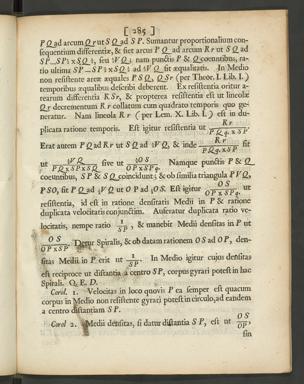 [ 285 ]
PQ ad arcum Qr ut SQ ad SP. Sumantur proportionalium con-
sequentium differentiæ, & fiet arcus PQ ad arcum Rr ut SQ ad
SP — SP½ × SQ½, seu ½VQ; nam punctis P & Q coeuntibus, ra-
tio ultima SP — SP½ × SQ½ ad ½VQ fit æqualitatis. In Medio
non resistente areæ æquales PSQ, QSr (per Theor. I. Lib. I.)
temporibus æqualibus describi deberent. Ex resistentia oritur a-
rearum differentia RSr, & propterea resistentia est ut lineolæ
Qr decrementum Rr collatum cum quadrato temporis quo ge-
neratur. Nam lineola Rr (per Lem. X. Lib. I.) est in du-
plicata ratione temporis. Est igitur resistentia ut Rr / PQq. × SP
Erat autem PQ ad Rr ut SQ ad ½VQ, & inde Rr / PQq. × SP fit
ut ½VQ / PQ × SP × SQ sive ut ½OS / OP × SPq. Namque punctis P & Q
coeuntibus, SP & SQ coincidunt; & ob similia triangula PVQ,
PSO, fit PQ ad ½VQ ut OP ad ½OS. Est igitur OS / OP × SPq. ut
resistentia, id est in ratione densitatis Medii in P & ratione
duplicata velocitatis conjunctim. Auferatur duplicata ratio ve-
locitatis, nempe ratio 1 / SP, & manebit Medii densitas in P ut
OS / OP × SP. Detur Spiralis, & ob datam rationem OS ad OP, den-
sitas Medii in P erit ut 1 / SP. In Medio igitur cujus densitas
est reciproce ut distantia a centro SP, corpus gyrari potest in hac
Spirali. Q. E. D.
Corol. 1. Velocitas in loco quovis P ea semper est quacum
corpus in Medio non resistente gyrari potest in circulo, ad eandem
a centro distantiam SP.
Corol 2. Medii densitas, si datur distantia SP, est ut OS / OP,
sin